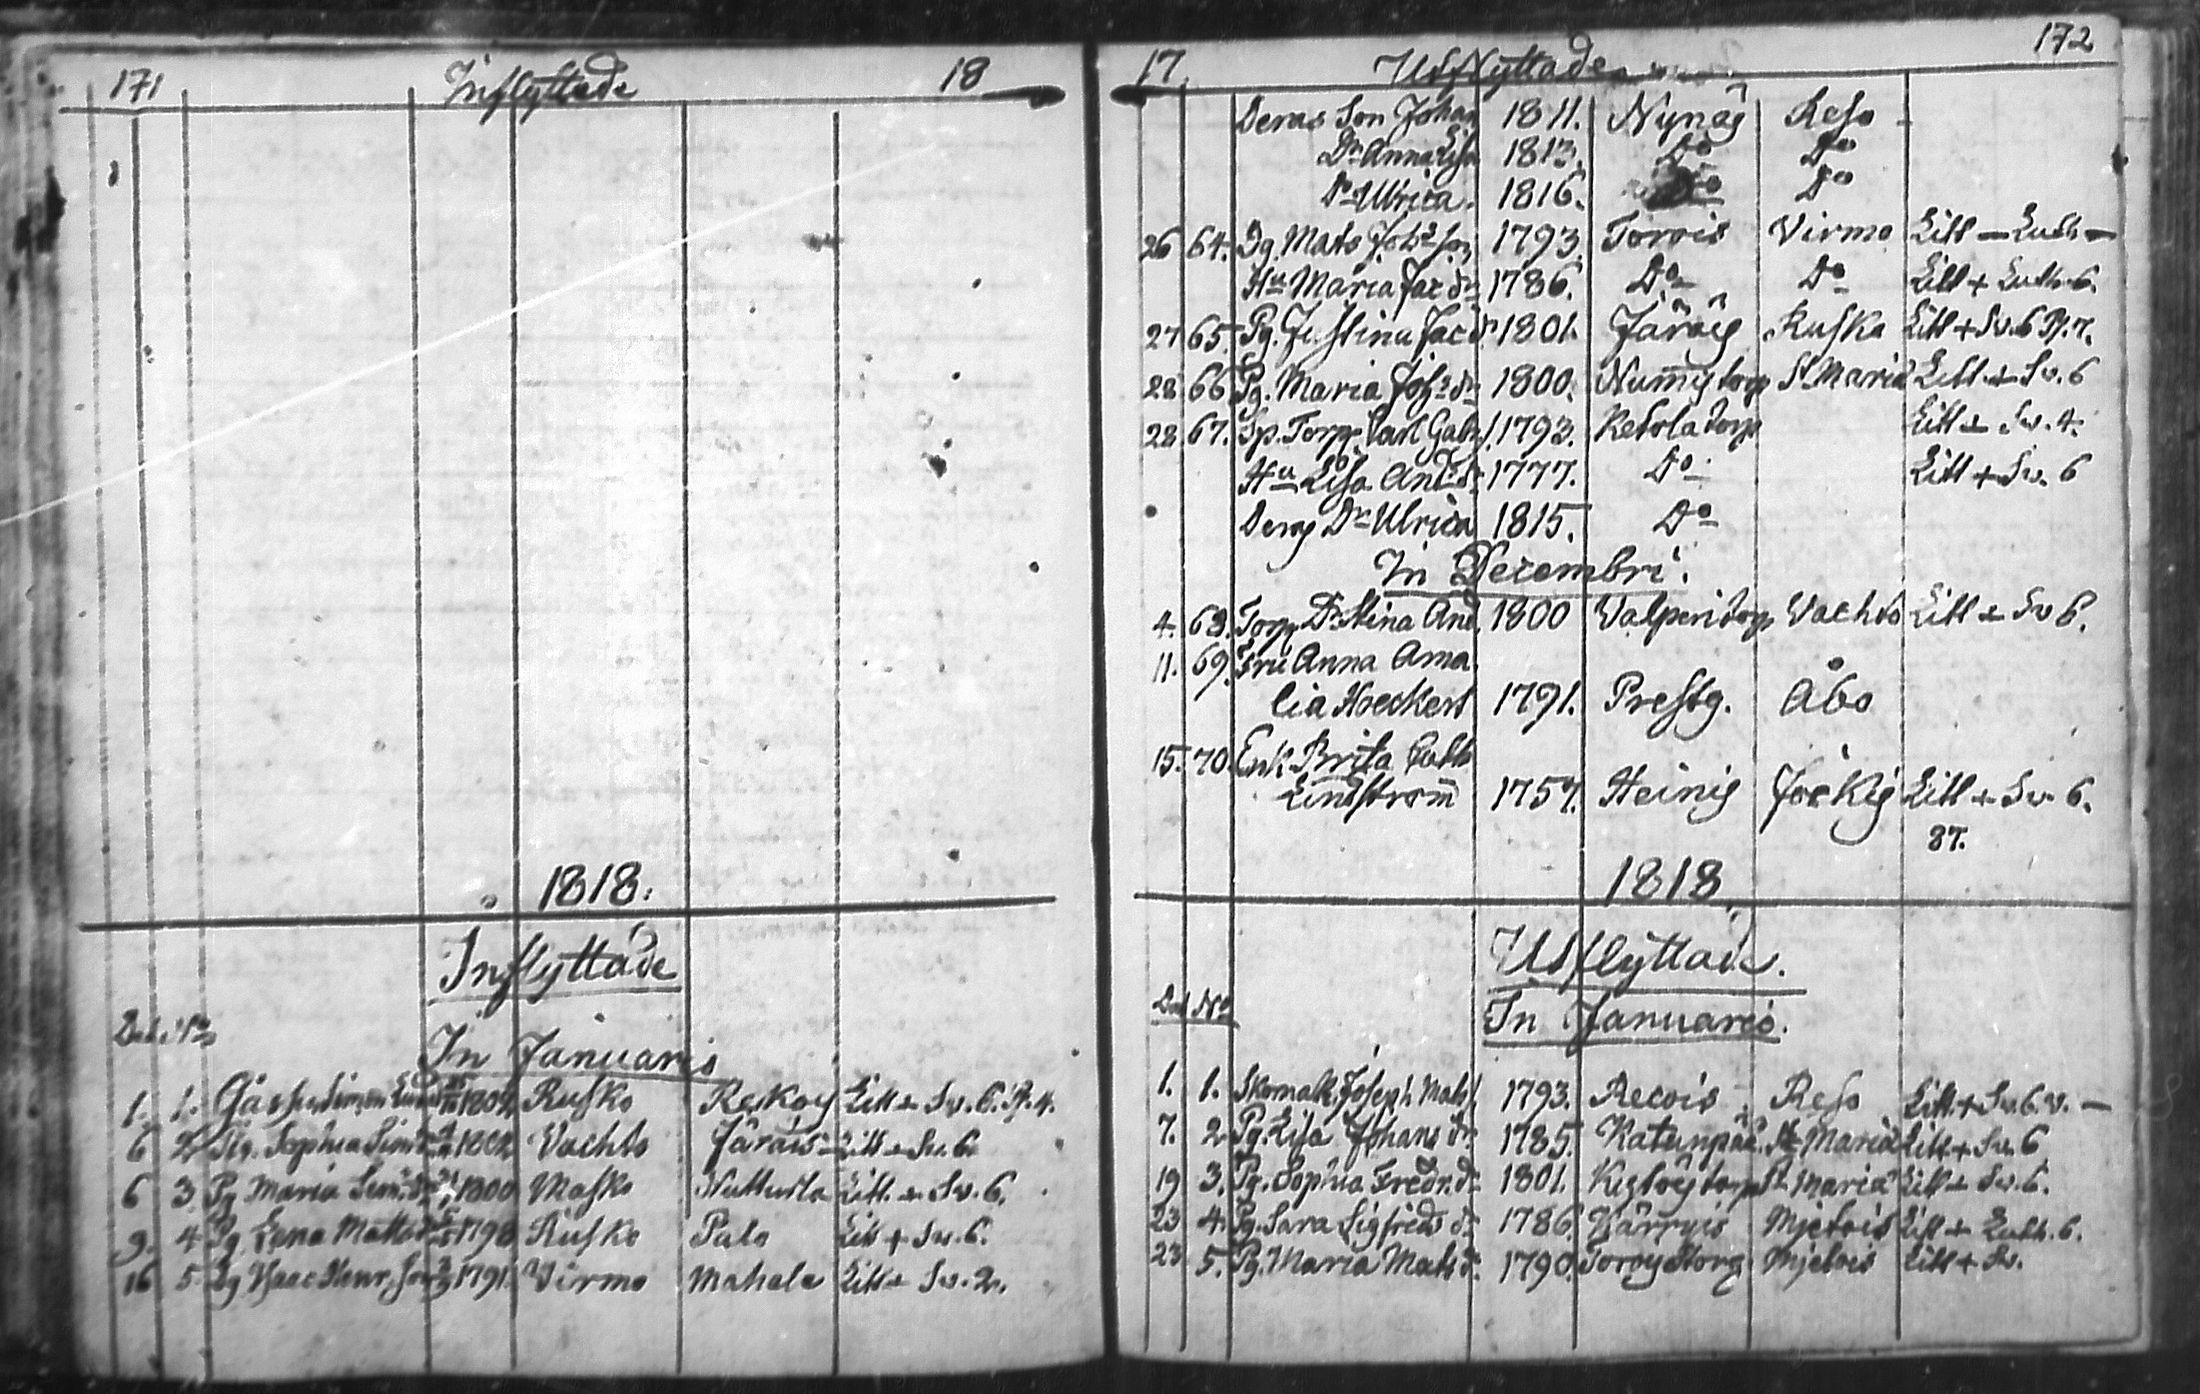 171 Inflyttade 18
1818.
Inflyttade
In Januario
1. 1. Simon 1802 Rusko Raskoij Litt + Sv. 6. Pl. 4.
6 2 Pig. Sophia Sim. dr 1802 Vachto Järäis Litt + Sv. 6.
6 3 Pg Maria Sim. dr 1800 Masko Litt. + Sv. 6.
9. 4 Pg Lena Matts dr 1798 Rusko Palo Litt + Sv. 6.
16 5. Dg Isaac Henr. son 1791. Virmo Mahala Litt + Sv. 2.
17. Utflyttade 172
Deras Son Johan 1811. Nynäs Reso
Dr. Anna Lisa 1813. Do Do
Dr Ulrica. 1816. Do Do
26 64. Dg. Mats Johs son 1793. Torois Virmo Litt — Luth —
Hu Maria Jac dr 1786. Do Do Litt + Luth. 6.
27 65. Pg. Justina Jac dr 1801. Järäis Rusko Litt + Sv. 6 Pl. 7.
28 66 Pg. Maria Johs dr 1800. Nummis torp St Mariæ Litt. + Sv. 6
28 67. Sp. Torp. Carl Gabr. 1793. Ketola torp Litt + Sv. 4.
Hu Lisa And. dr 1777. Do Litt + Sv. 6
Deras Dr Ulrica 1815. Do
In Decembri.
4. 68. Torp. Dr. Stina And. 1800 Valperi torp Vachto Litt + Sv 6.
11. 69. Fru Anna Ama
lia Hoeckert 1791. Prestg. Åbo
15. 70. Enk. Brita Cath
Lindström 1757. Heinis Jockis Litt + Sv. 6.
87.
1818.
Utflyttade.
Dat No
In Januario.
1. 1. Skomak. Joseph Mats 1793. Recois Reso Litt. + Sv. 6. v. —
7. 2 Pg. Lisa Johans dr 1785. Katunpää. St Mariæ Litt + Sv. 6
19 3. Pg. Sophia Fredr. dr 1801. torp St Mariæ Litt + Sv. 6.
23 4. Pg. Sara Sigfreds dr 1786. Kärryis Mjetois Litt + Luth. 6.
23 5. Pg. Maria Mats dr. 1790. Mjetois Litt + Sv.